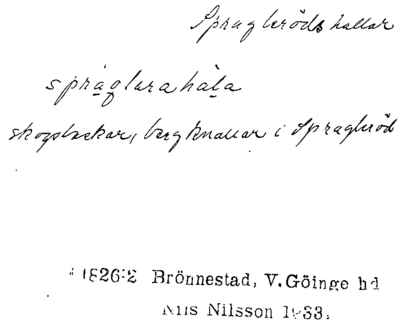 Spragleröds hallar
språglarahàla
skogsbackar, bergknallar i Spragleröd
1826:2 Brönnestad, V.Göinge hd
Nils Nilsson 1933.